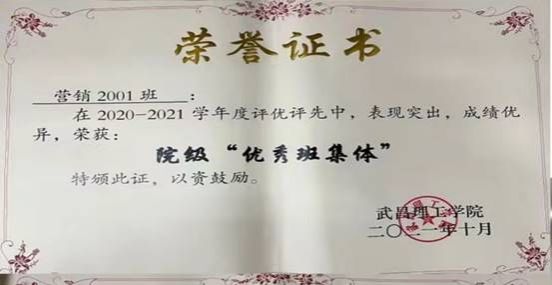 荣誉证书
营销2001班：
在2020-2021学年度评优评先中，表现突出，成绩优
异，荣获：
院级“优秀班集体”
特颁此证，以资鼓励。
武昌理工学院
二〇二一年十月